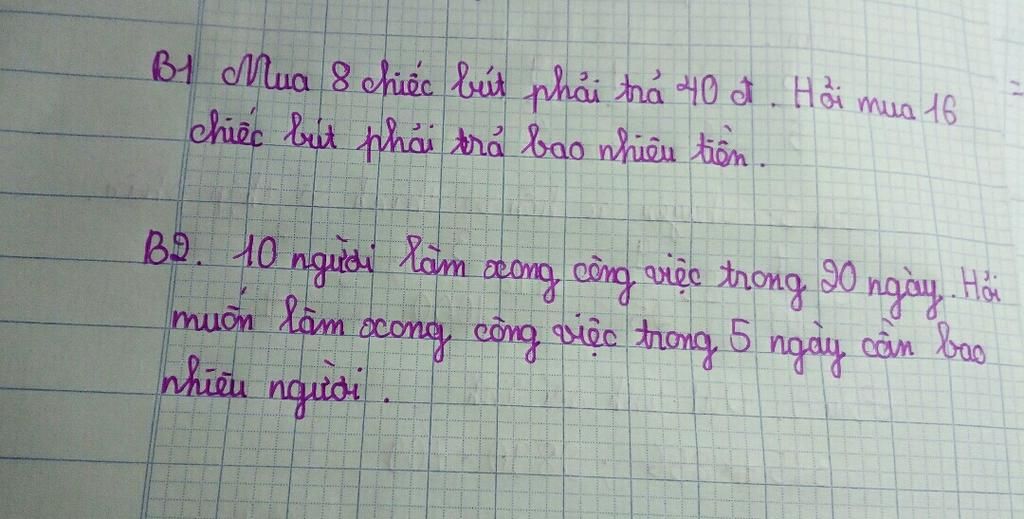 B1 Mua 8 chiếc bút phải trả 40 đ. Hỏi mua 16
chiếc bút phải trả bao nhiêu tiền.
B2. 10 người làm xong công việc trong 20 ngày. Hỏi
muốn làm xong công việc trong 5 ngày cần bao
nhiêu người.